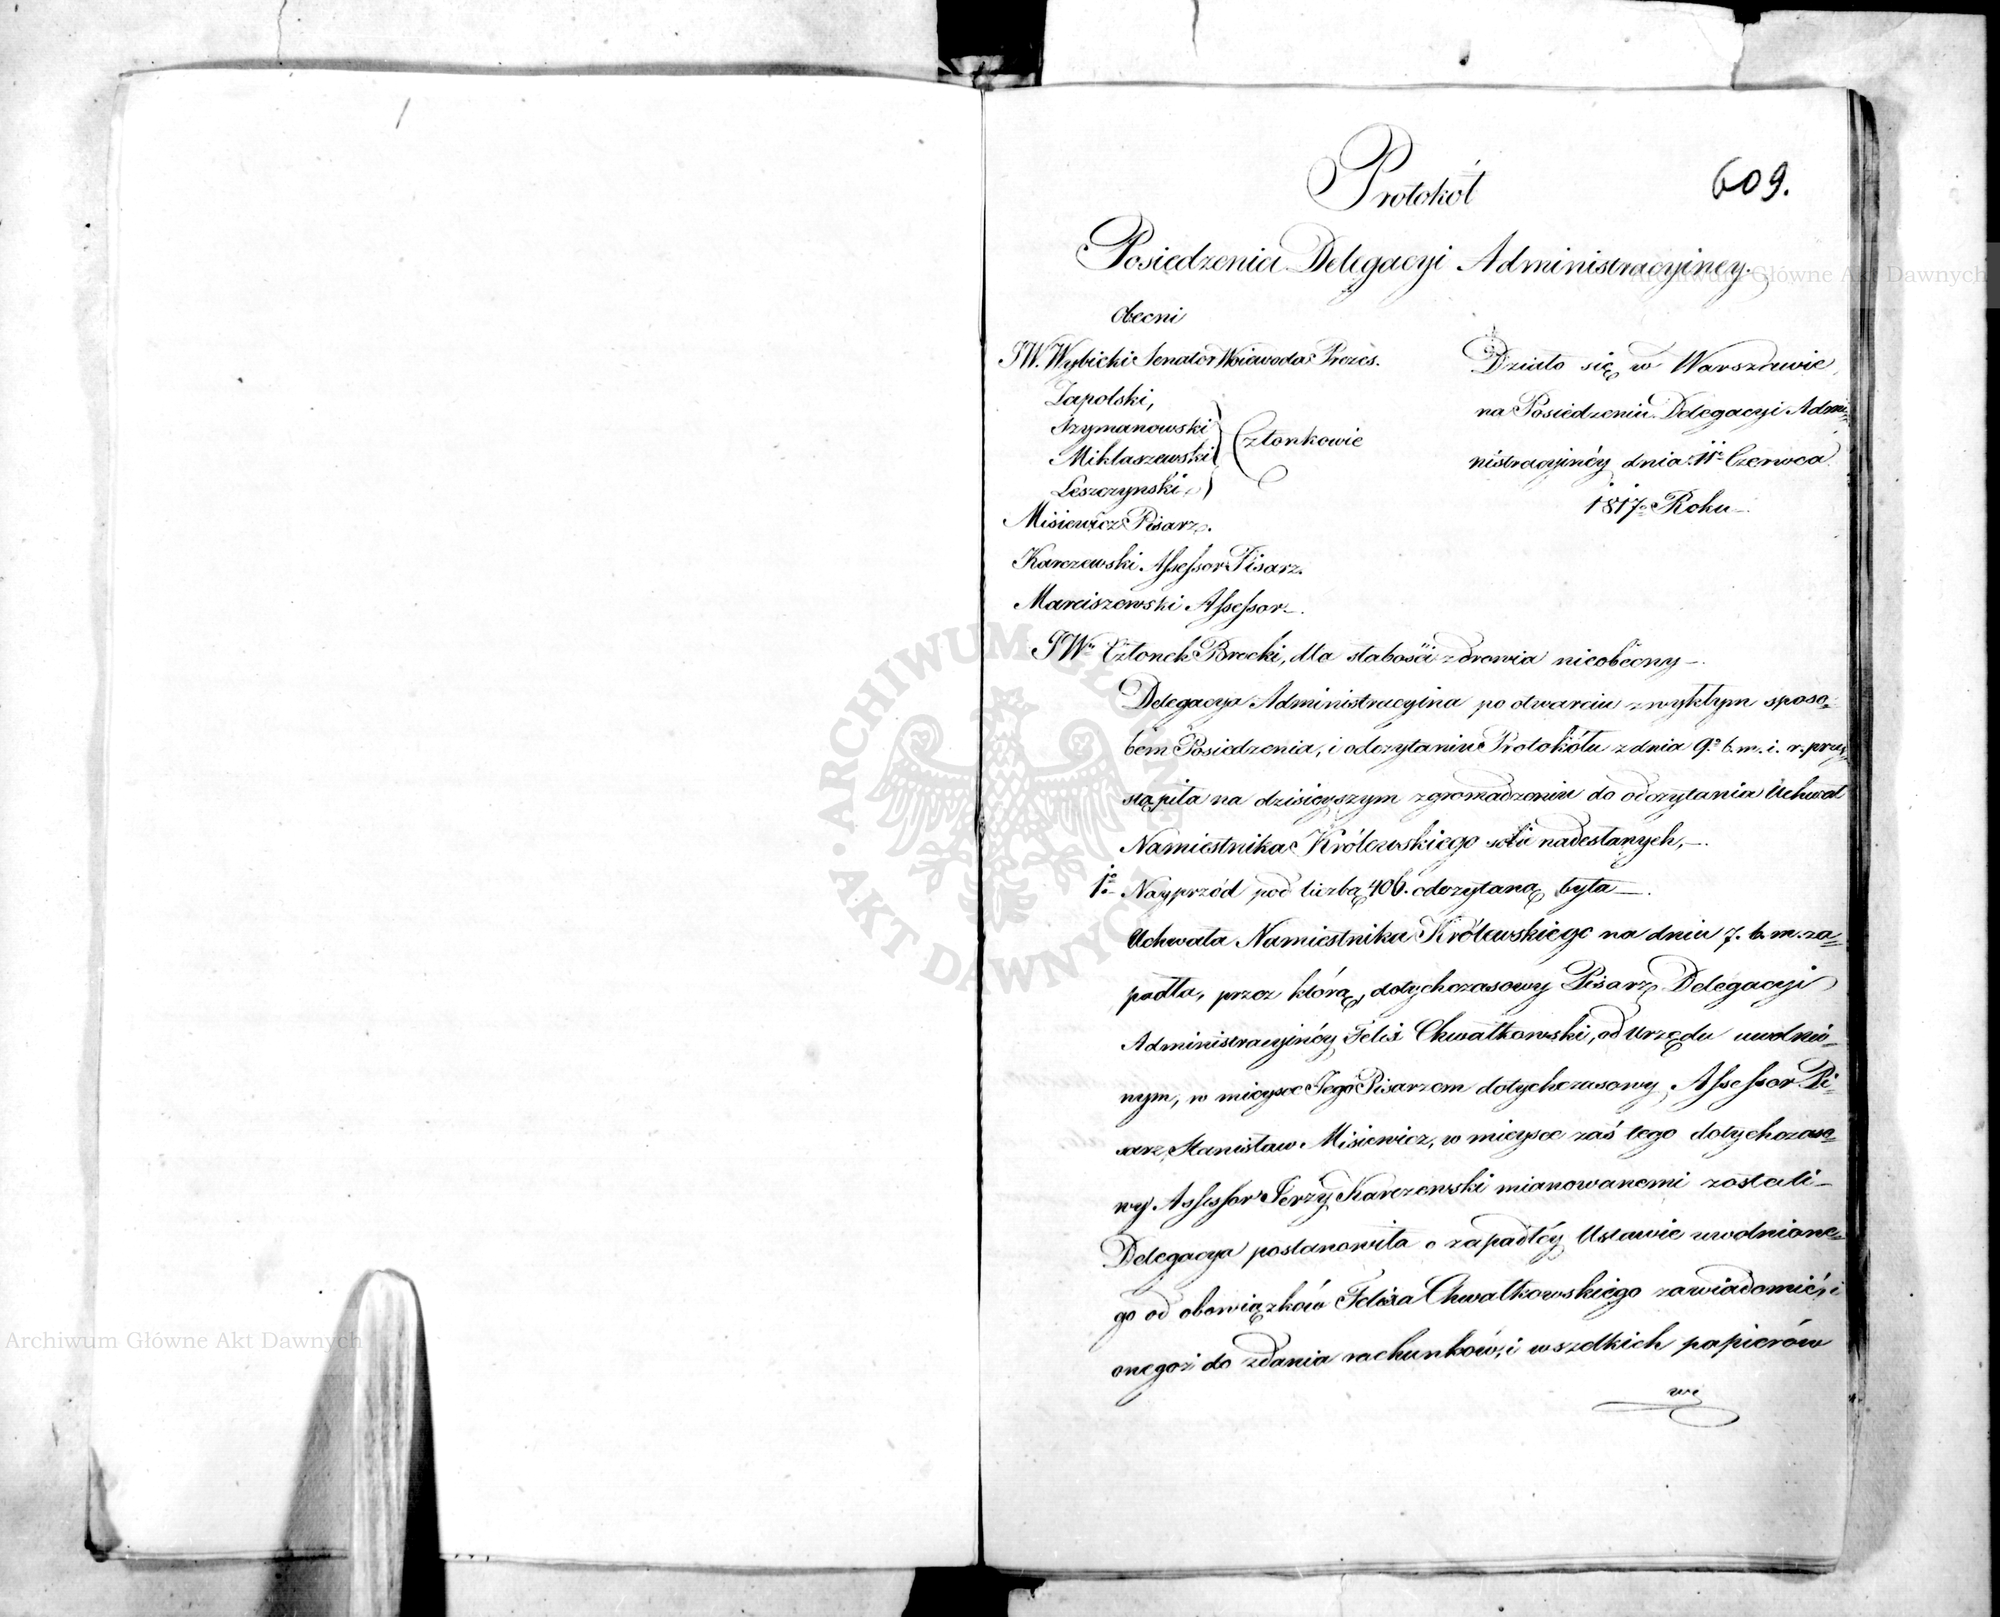 609.
Protokół
Posiedzenia Delegacyi Administracyiney.
Obecni
JW. Wybicki Senator Woiewoda Prezes.
Zapolski,
Szymanowski
Miklaszewski
Leszczynski
Członkowie
Misiewicz Pisarz.
Karczewski Assessor Pisarz.
Marciszewski Assessor.
Działo się w Warszawie
na Posiedzeniu Delegacyi Admi-
nistracyinéy dnia 11º Czerwca
1817º Roku
JWny Członek Brocki, dla słabości zdrowia nieobecny
Delegacya Administracyina po otwarciu zwykłym sposo-
bem Posiedzenia, i odczytaniu Protokółu z dnia 9º b. m. i. r. przy-
stąpiła na dzisieyszym zgromadzeniu do odczytania Uchwał
Namiestnika Królewskiego sobie nadesłanych,
1º Nayprzód pod liczbą 406. odczytaną była
Uchwała Namiestnika Królewskiego na dniu 7. b. m. za=
padła, przez którą dotychczasowy Pisarz Delegacyi
Administracyinéy Felix Chwałkowski, od Urzędu uwolnio-
nym, w mieysce Jego Pisarzem dotychczasowy Assessor Pi-
sarz Stanisław Misiewicz, w mieysce zaś tego dotychczaso-
wy Assessor Jerzy Karczewski mianowanemi zostali
Delegacya postanowiła o zapadłéy Ustawie uwolnione-
go od obowiązków Felixa Chwałkowskiego zawiadomić, i
onegoż do zdania rachunków, i wszelkich papierów
Archiwum Główne Akt Dawnych
Archiwum Główne Akt Dawnych
ARCHIWUM GŁÓWNE AKT DAWNYCH